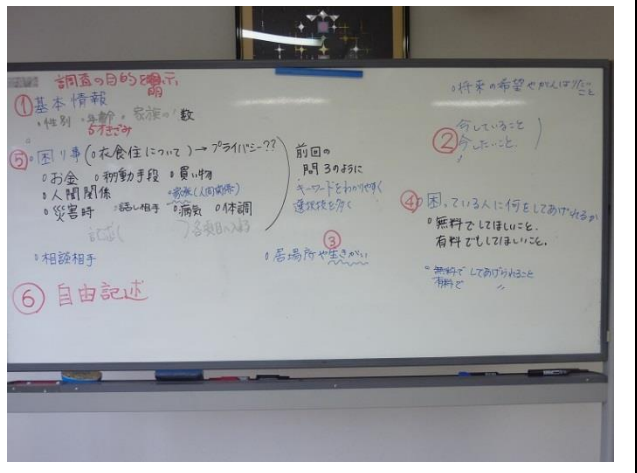 調査の目的を明示
①基本情報
・性別 ・年齢 ・家族の人数
5才きざみ
⑤・困り事(・衣食住について)→プライバシー??
・お金 ・移動手段 ・買い物
・人間関係 ・家族(人間関係)
・災害時 ・話し相手 ・病気 ・体調
・相談相手
⑥ 自由記述
前回の
問3のように
キーワードをわかりやすく
選択肢を多く
③
・居場所や生きがい
・将来の希望やがんばりたいこと
②
今していること
今したいこと
④・困っている人に何をしてあげれるか
・無料でしてほしいこと、
有料でもしてほしいこと、
・無料でしてあげられること
有料で 〃